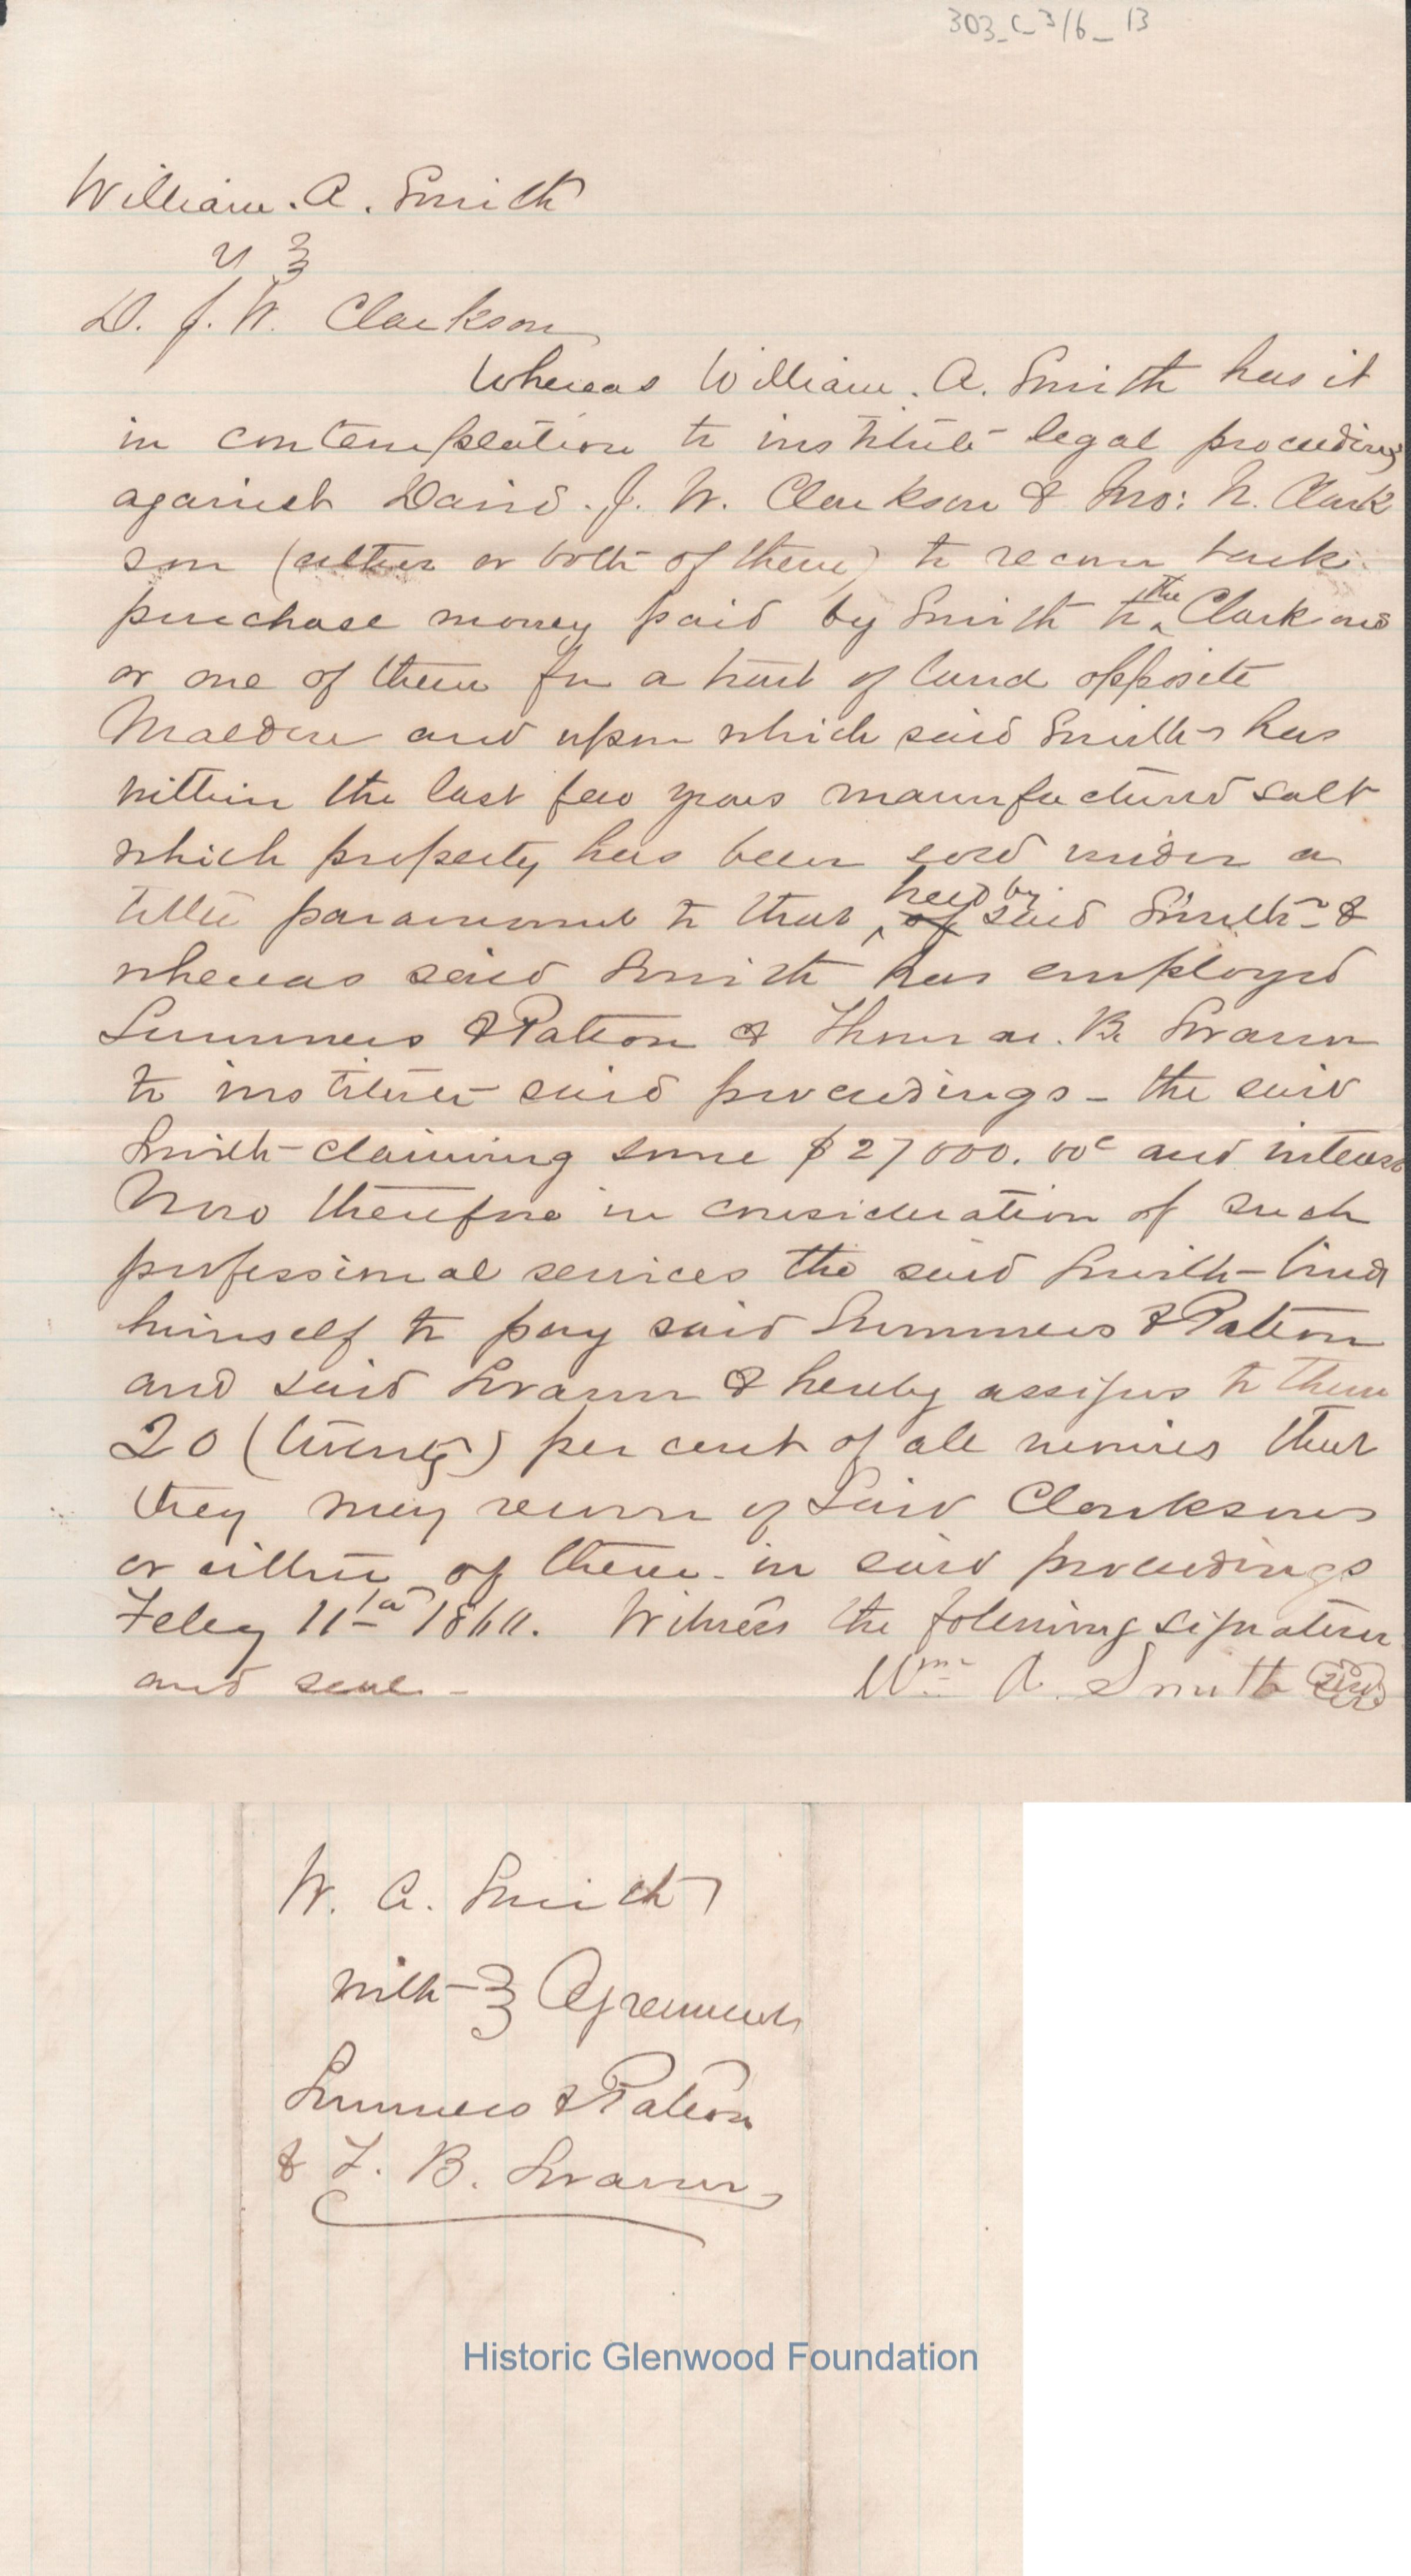 303_C_3/6_13
William. A. Smith
vs
D. J. W. Clarkson
Whereas William. A. Smith has it
in contemplation to institute legal proceedings
against David. J. W. Clarkson & Jno: N. Clark
son (either or both of them) to recover back
purchase money paid by Smith to the Clarksons
or one of them for a tract of land opposite
Malden and upon which said Smith has
within the last few years manufactured salt
which property has been sold under a
title paramount to that held by of said Smith - &
whereas said Smith has employed
Summers & Patton & Thomas. B. Swann
to institute said proceedings - the said
Smith - claiming some $27000.00c and interest
Now therefore in consideration of such
professional services the said Smith - binds
himself to pay said Summers & Patton
and said Swann & hereby assigns to them
20 (twenty) per cent of all monies that
they may recover of said Clarksons
or either of them - in said proceedings
Feby 11th Witness the following signature
and seal -
Wm A. Smith seal
W. A. Smith
with Agreement
Summers & Patton
& T. B. Swann
Historic Glenwood Foundation